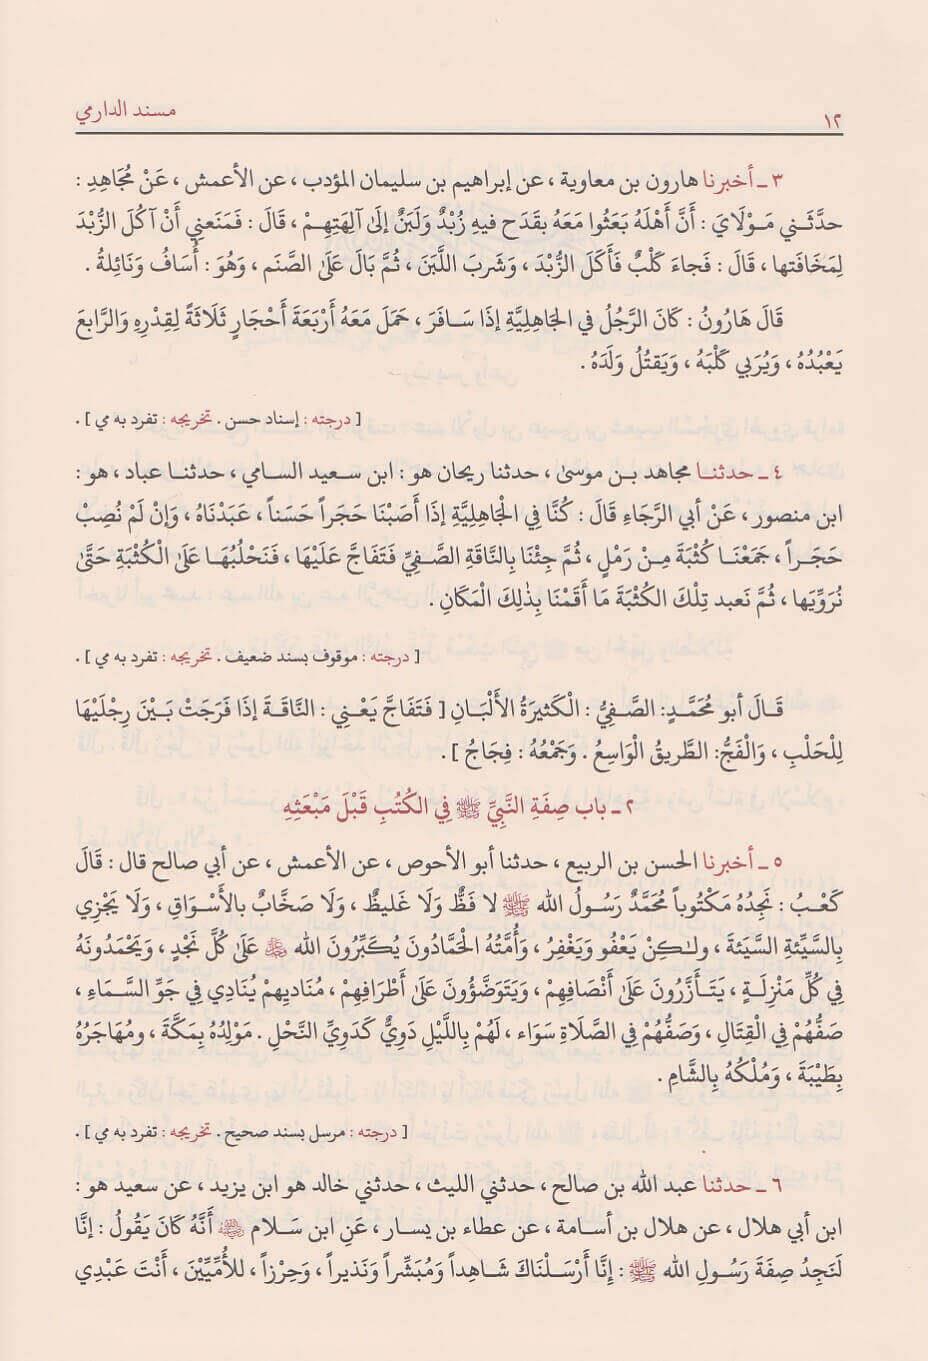 ١٢ مسند الدارمي
٣ ـ أخبرنا هارون بن معاوية ، عن إبراهيم بن سليمان المؤدب ، عن الأعمش ، عَنْ مُجَاهِدٍ :
حدَّثَني مَوْلَايَ : أَنَّ أَهْلَهُ بَعَثُوا مَعَهُ بِقَدَحٍ فيهِ زُبْدٌ وَلَبَنٌ إِلَىٰ آلِهَتِهِمْ ، قَالَ : فَمَنَعَنِي أَنْ آكُلَ الزُّبْدَ
لِمَخَافَتها ، قَالَ : فَجاءَ كَلْبٌ فَأَكَلَ الزُّبْدَ ، وَشَرِبَ اللَّبَنَ ، ثُمَّ بَالَ عَلَى الصَّنَمِ ، وَهُوَ : أُسَافُ وَنَائِلةُ .
قَالَ هَارُونُ : كَانَ الرَّجُلُ في الجَاهِليَّةِ إِذَا سَافَرَ ، حَمَلَ مَعَهُ أَرْبَعَةَ أَحْجَارٍ ثَلَاثَةً لِقِدْرِهِ وَالرَّابِعَ
يَعْبُدُهُ ، وَيُرَبي كَلْبَهُ ، وَيَقتُلُ وَلَدَهُ .
[ درجته : إسناد حسن . تخريجه : تفرد به مي ] .
٤ ـ حدثنا مجاهد بن موسىٰ ، حدثنا ريحان هو : ابن سعيد السامي ، حدثنا عباد ، هو :
ابن منصور ، عَنْ أبي الرَّجَاءِ قَالَ : كُنَّا فِي الْجَاهِليَّةِ إِذَا أَصَبْنَا حَجَراً حَسَناً ، عَبَدْنَاهُ ، وَإِنْ لَمْ نُصِبْ
حَجَراً ، جَمَعْنَا كُثْبَةً مِنْ رَمْلٍ ، ثُمَّ جِئْنَا بِالنَّاقَةِ الصَّفِيِّ فَتَفَاجَّ عَلَيْهَا ، فَنَحْلُبُهَا عَلَى الْكُثْبَةِ حَتَّىٰ
نُرَوِّيَها ، ثُمَّ نَعبد تِلْكَ الكُثْبَةَ مَا أَقَمْنَا بِذٰلِكَ الْمَكَانِ .
[ درجته : موقوف بسند ضعيف . تخريجه : تفرد به مي ] .
قَالَ أبو مُحَمَّدٍ: الصَّفِيُّ : الْكَثيرَةُ الأَلْبَانِ [ فَتَفَاجَّ يَعْنِي : النَّاقَةَ إِذَا فَرَجَتْ بَيْنَ رِجْلَيْهَا
لِلْحَلْبِ ، وَالْفَجُّ: الطَّرِيقُ الْوَاسِعُ . وَجَمْعُهُ : فِجَاجُ ] .
٢ ـ باب صِفَةِ النَّبِيِّ ﷺ فِي الكُتُبِ قَبْلَ مَبْعَثِهِ
٥ ـ أخبرنا الحسن بن الربيع ، حدثنا أبو الأحوص ، عن الأعمش ، عن أبي صالح قال : قَالَ
كَعْبُ : نَجِدُهُ مَكْتُوباً مُحَمَّدٌ رَسُولُ الله ﷺ لا فَظٌّ وَلَا غَلِيظٌ ، وَلَا صَخَّابٌ بِالأَسْوَاقِ ، وَلَا يَجْزِي
بِالسَّيِّئَةِ السَّيِّئَةَ ، ولٰكِنْ يَعْفُو وَيَغْفِرُ ، وَأُمَّتُهُ الْحَمَّادُونَ يُكَبِّرُونَ الله ﷻ عَلَىٰ كُلِّ نَجْدٍ ، وَيَحْمَدُونَهُ
فِي كُلِّ مَنْزِلَةٍ ، يَتَأَزَّرُونَ عَلَىٰ أَنْصَافِهِمْ ، وَيَتَوَضَّؤُونَ عَلَىٰ أَطْرَافِهِمْ ، مُنَادِيهِمْ يُنَادِي فِي جَوِّ السَّمَاءِ ،
صَفُّهُمْ فِي الْقِتَالِ ، وَصَفُّهُمْ فِي الصَّلَاةِ سَوَاء ، لَهُمْ بِاللَّيْلِ دَوِيٌّ كَدَوِيِّ النَّحْلِ . مَوْلِدُهُ بِمَكَّةَ ، ومُهَاجَرُهُ
بِطَيْبَةَ ، وَمُلْكُهُ بِالشَّامِ .
[ درجته : مرسل بسند صحيح . تخريجه : تفرد به مي ] .
٦ ـ حدثنا عبد الله بن صالح ، حدثني الليث ، حدثني خالد هو ابن يزيد ، عن سعيد هو :
ابن أبي هلال ، عن هلال بن أسامة ، عن عطاء بن يسار ، عَنِ ابن سَلَام ﵁ أَنَّهُ كَانَ يَقُولُ : إِنَّا
لَنَجِدُ صِفَةَ رَسُولِ الله ﷺ : إِنَّا أَرْسَلْنَاكَ شَاهِداً وَمُبَشِّراً وَنَذيراً ، وَحِرْزاً ، للأُمِّيِّيْنَ ، أَنْتَ عَبْدِي